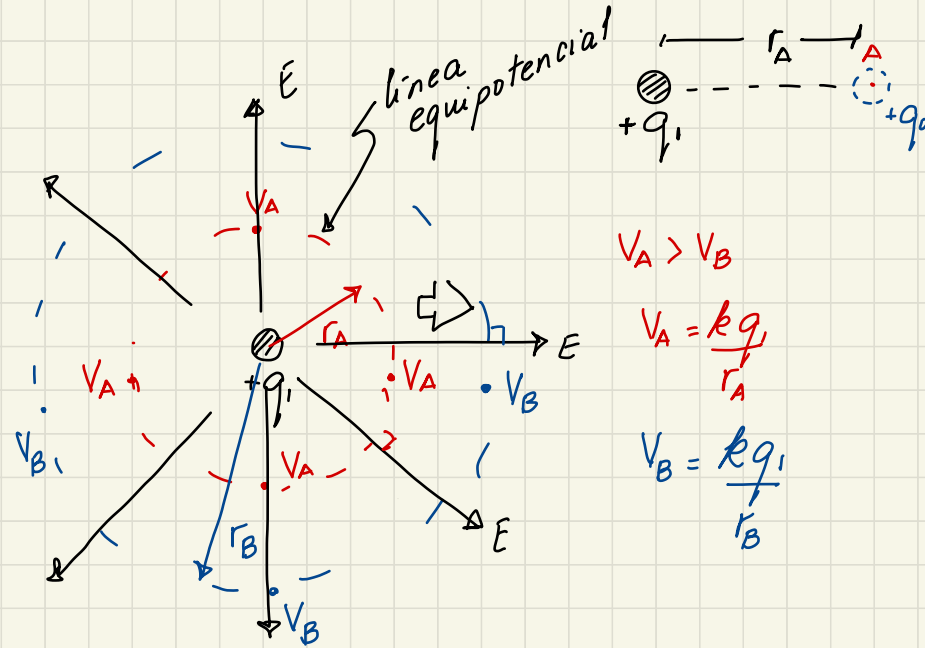 E
línea
equipotencial
r_A
A
+q₁
+q₀
V_A
V_A > V_B
r_A
E
V_A = kq₁
r_A
V_A
V_A
+q₁
V_B
V_B
V_B = kq₁
r_B
V_A
r_B
E
V_B